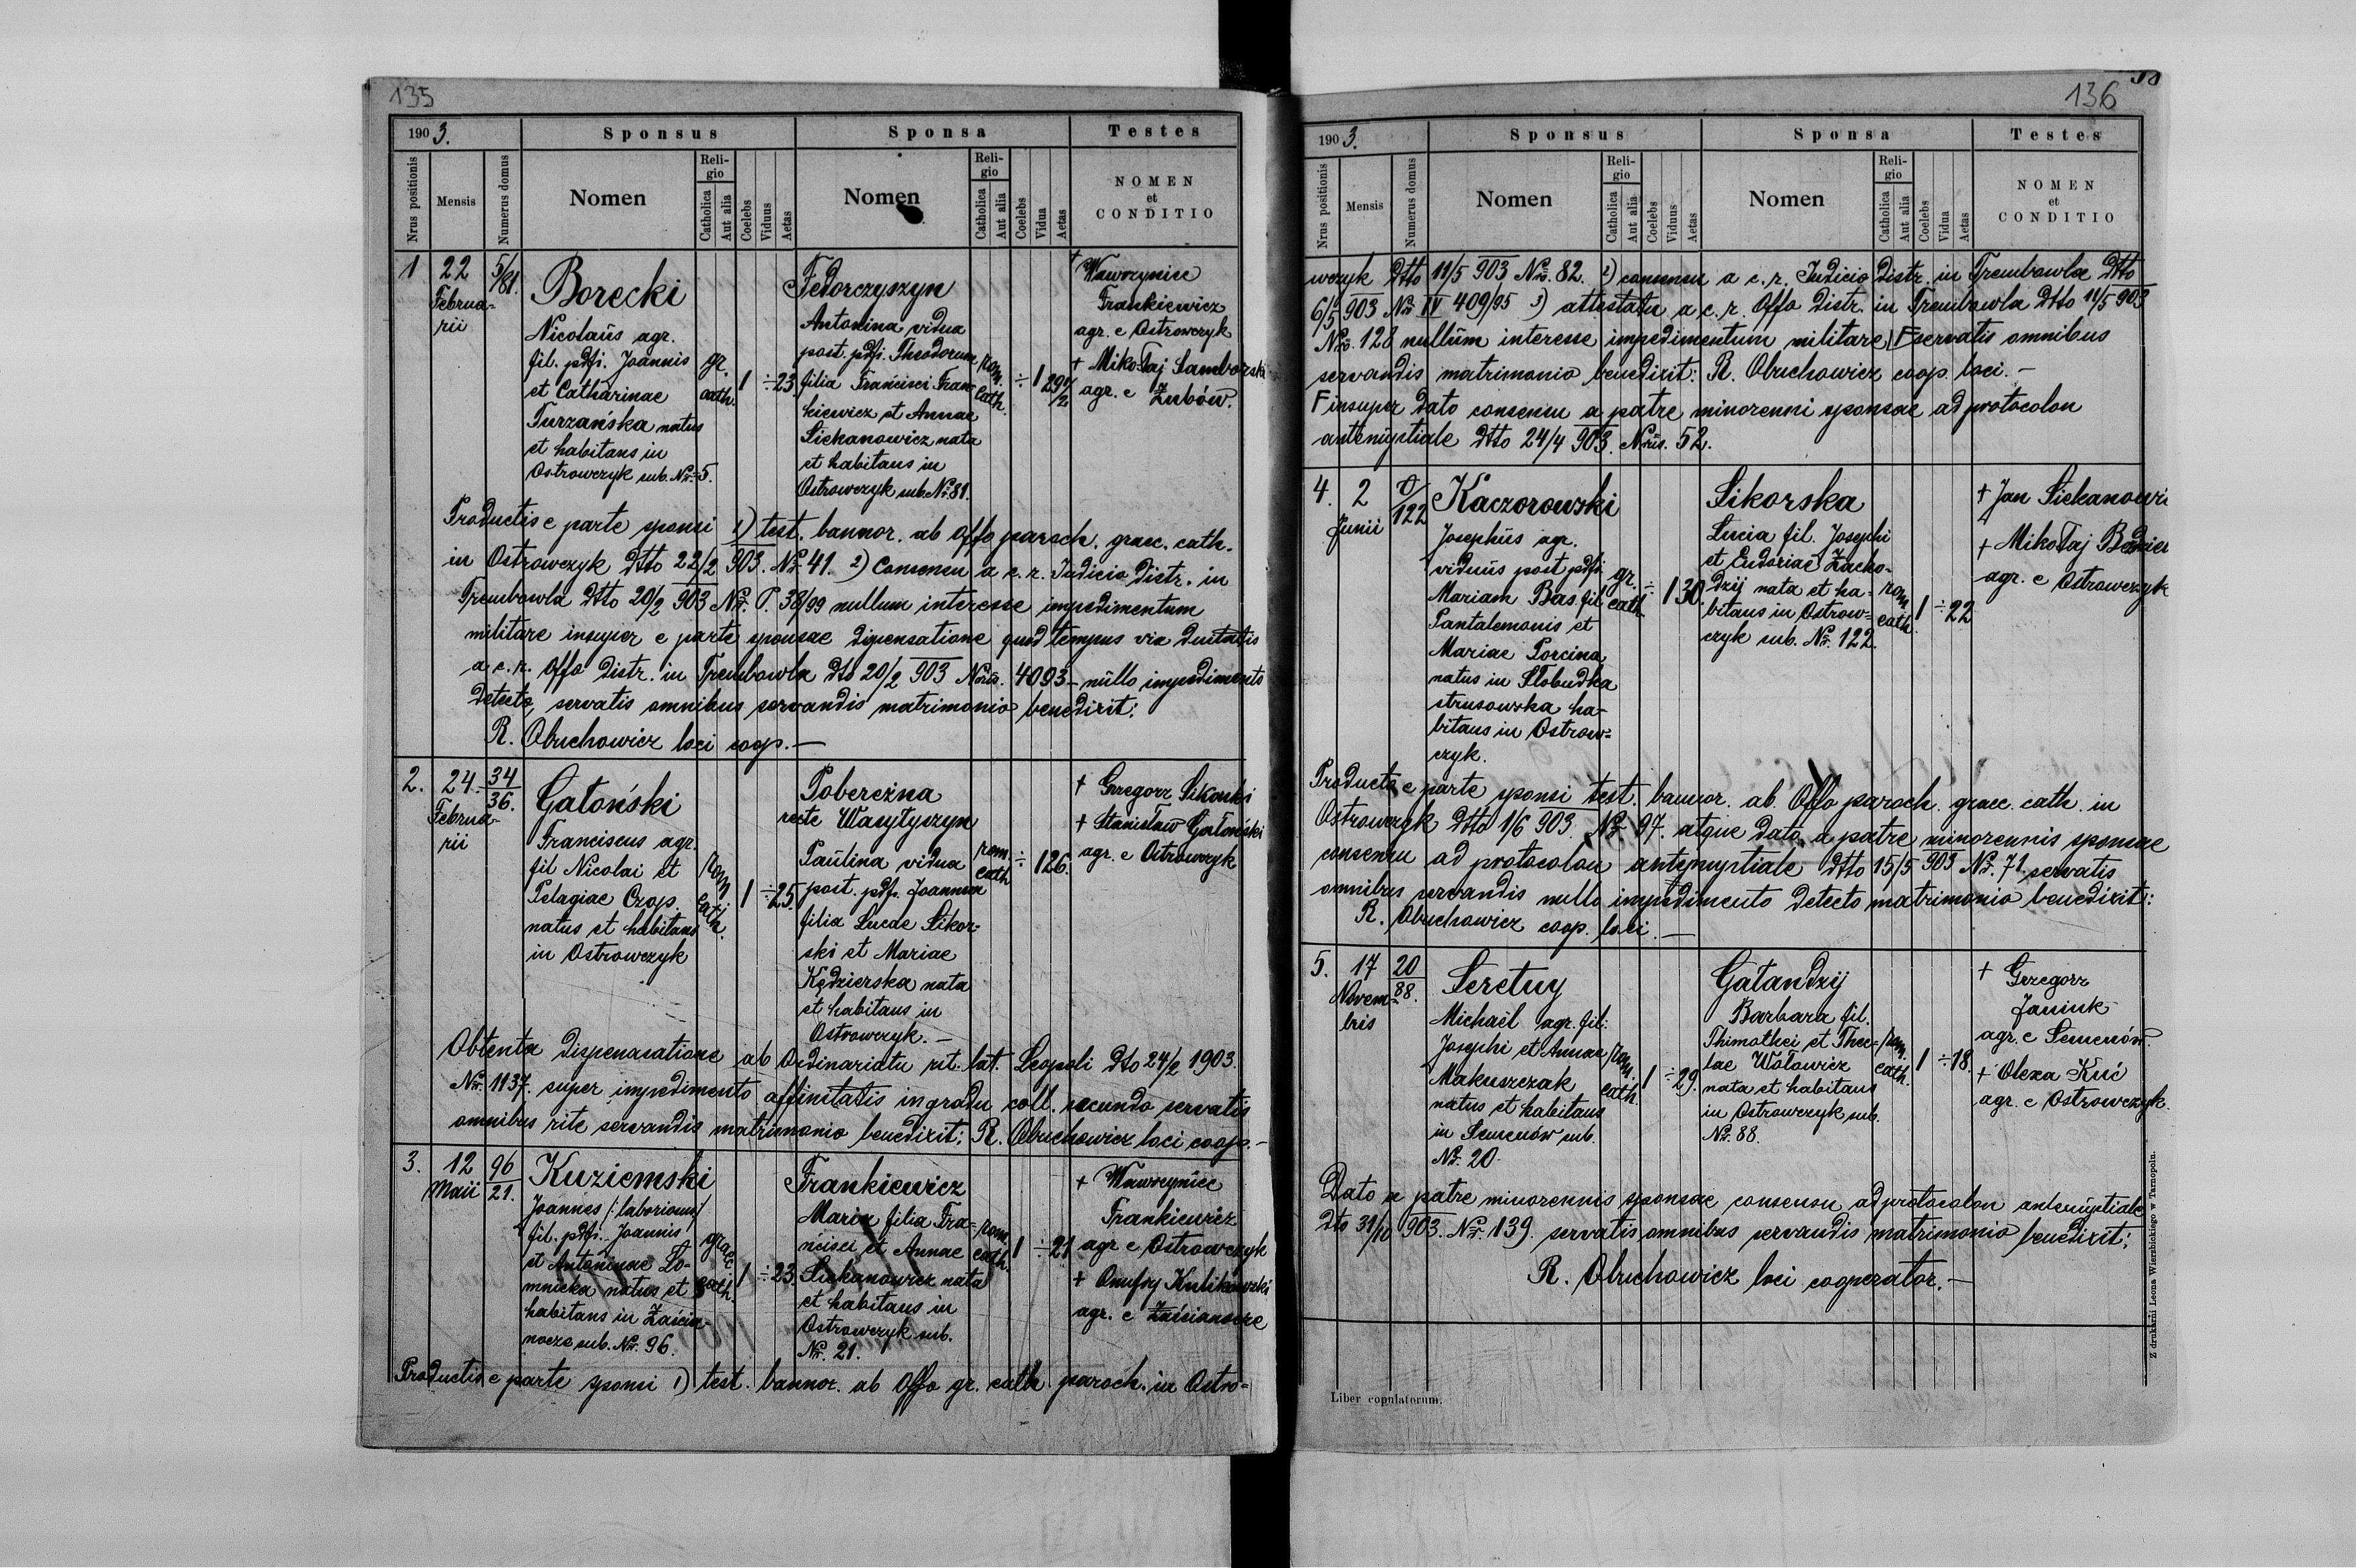 135
190 3.
Sponsus
Sponsa
Testes
Nrus positionis
Mensis
Numerus domus
Nomen
Religio
Catholica
Aut alia
Coelebs
Viduus
Aetas
Nomen
Religio
Catholica
Aut alia
Coelebs
Vidua
Aetas
NOMEN
et
CONDITIO
1
22
Februa-
rii
5/81.
Borecki
Nicolaus agr.
fil. pdfi. Joannis
et Catharinae
Turzańska natus
et habitans in
Ostrowczyk sub. Nr. 5.
gr.
cath.
1
÷
23.
Fedorczyszyn
Antonina vidua
post. pdfi. Theodorum
filia Francisci Fran-
kiewicz et Annae
Siekanowicz nata
et habitans in
Ostrowczyk sub. Nr. 81.
rom.
cath.
÷
1
29 1/2
+ Wawrzyniec
Frankiewicz
agr. e Ostrowczyk
+ Mikołaj Samborski
agr. e Zubów.
Productis e parte sponsi 1) test. bannor. ab Offo paroch. graec. cath.
in Ostrowczyk dtto 22/2 903. Nr. 41. 2) Consensu a c. r. Judicio Distr. in
Trembowla dtto 20/2 903 Nr. P. 38/99 nullum interesse impedimentum
militare insuper e parte sponsae dispensatione quod tempus viduitatis
a c. r. Offo Distr. in Trembowla dto 20/2 903 Nrus. 4093 – nullo impedimento
detecto, servatis omnibus servandis matrimonio benedixit:
R. Obuchowicz loci coop. —
2.
24.
Februa-
rii
34
36.
Gatoński
Franciscus agr.
fil Nicolai et
Pelagiae Czop.
natus et habitans
in Ostrowczyk
rom.
cath.
1
÷
25.
Pobereżna
recte Wasyłyszyn
Paulina vidua
post. pdfi. Joannem
filia Lucae Sikor-
ski et Mariae
Kędzierska nata
et habitans in
Ostrowczyk. —
rom.
cath
÷
1
26.
+ Grzegorz Sikorski
+ Stanisław Gatoński
agr. e Ostrowczyk
Obtenta dispensatione ab Ordinariatu rit. lat. Leopoli dto 24/2 1903.
Nr. 1137. super impedimento affinitatis in gradu coll. secundo servatis
omnibus rite servandis matrimonio benedixit: R. Obuchowicz loci coop. –
3.
12
Maii
96
21.
Kuziemski
Joannes /: laboriosus/
fil. pdfi. Joannis
et Antoninae Ło-
mnicka natus et
habitans in Zaścia-
nocze sub. Nr. 96.
graec.
cath.
1
÷
23.
Frankiewicz
Maria filia Fra-
ncisci et Annae
Siekanowicz nata
et habitans in
Ostrowczyk sub.
Nr. 21.
rom.
cath.
1
÷
21
+ Wawrzyniec
Frankiewicz
agr e Ostrowczyk
+ Onufry Kulikowski
agr. e Zaścianocze
Productis e parte sponsi 1) test. bannor. ab Offo gr. cath. paroch. in Ostro=
136
190 3.
Sponsus
Sponsa
Testes
Nrus positionis
Mensis
Numerus domus
Nomen
Religio
Catholica
Aut alia
Coelebs
Viduus
Aetas
Nomen
Religio
Catholica
Aut alia
Coelebs
Vidua
Aetas
NOMEN
et
CONDITIO
wczyk dtto 11/5 903 Nr. 82. 2) consensu a c. r. Judicio Distr. in Trembowla dtto
6/5 903 Nr IV 409/95 3) attestatu a c. r. Offo Distr. in Trembowla dtto 11/5 903
Nr. 128 nullum interesse impedimentum militare, F servatis omnibus
servandis matrimonio benedixit: R. Obuchowicz coop. loci. –
F insuper dato consensu a patre minorenni sponsae ad protocolon
antenuptiale dtto 24/4 903. Nrus. 52.
4.
2
Junii
0/122
Kaczorowski
Josephus agr.
viduus post pdfi
Mariam Bas fil
Pantalemonis et
Mariae Porcina
natus in Słobudka
strusowska ha-
bitans in Ostrow=
czyk.
gr.
cath.
÷
1
30.
Sikorska
Lucia fil. Josephi
et Eudoxiae Zacho-
dzij nata et ha-
bitans in Ostrow=
czyk sub. Nr. 122.
rom
cath.
1
÷
22
+ Jan Siekanowi
+ Mikołaj
agr. e Ostrowczyk
Producto e parte sponsi test. bannor. ab Offo paroch. graec. cath. in
Ostrowczyk dtto 1/6 903. Nr 97. atque dato a patre minorennis sponsae
consensu ad protocolon antenuptiale dtto 15/5 903 Nr. 71. servatis
omnibus servandis nullo impedimento detecto matrimonio benedixit:
R. Obuchowicz coop. loci. —
5.
17
Novem-
bris
20
88.
Seretny
Michaël agr. fil.
Josephi et Annae
Makuszczak
natus et habitans
in Semenów sub.
Nr. 20
rom.
cath.
1
÷
29.
Gałandzij
Barbara fil.
Thimothei et Thec=
lae Wołowicz
nata et habitans
in Ostrowczyk sub.
Nr. 88.
rom.
cath.
1
÷
18.
+ Grzegorz
Janiuk
agr. e Semenów.
+ Olexa Kuć
agr. e Ostrowczyk.
Dato a patre minorennis sponsae consensu ad protocolon antenuptiale
dto 31/10 903. Nr. 139. servatis omnibus servandis matrimonio benedixit:
R. Obuchowicz loci cooperator. —
Liber copulatorum.
Z drukarni Leona Wierzbickiego w Tarnopolu.